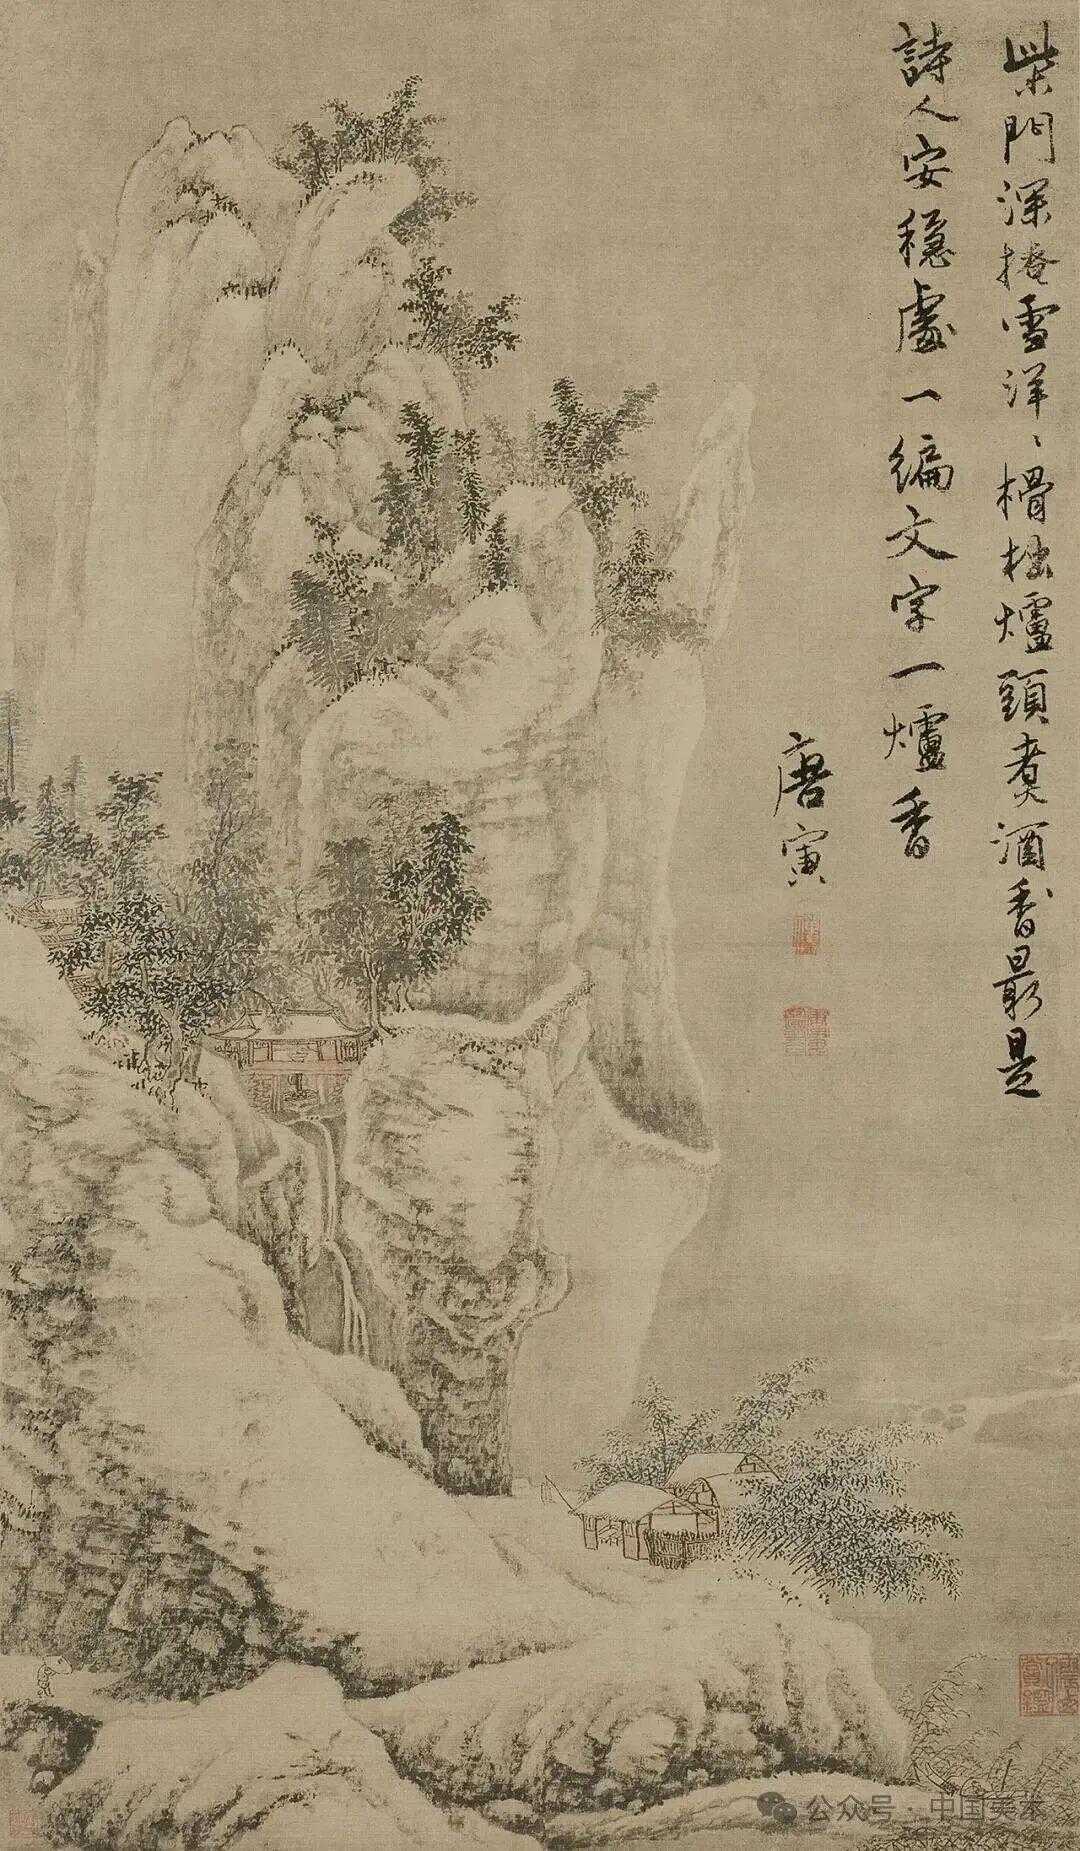 柴門深掩雪洋〻榾柮爐頭煮酒香最是
詩人安穩處一編文字一爐香
唐寅
公众号·中国美术